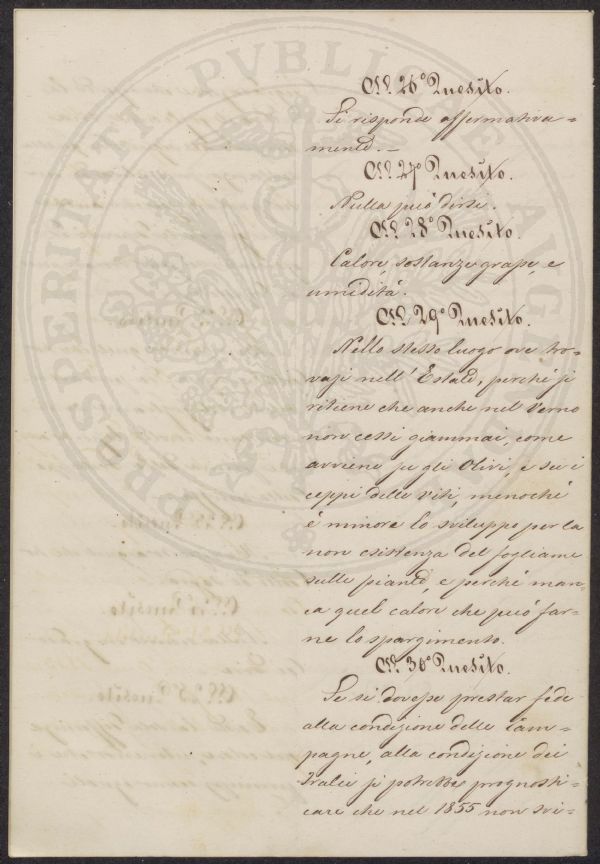 Al 26° Quesito.
Si risponde affermativa=
mente. –
Al 27° Quesito.
Nulla può dirsi.
Al 28° Quesito.
Calore, sostanze grasse, e
umidità.
Al 29° Quesito.
Nello stesso luogo ove tro-
vasi nell' Estate, perché si
ritiene che anche nel Verno
non cessi giammai, come
avviene su gli Olivi, e sui
ceppi delle viti, menoché
è minore lo sviluppo per la
non esistenza del fogliame
sulle piante, e perché man-
ca quel calore che può far-
ne lo spargimento.
Al 30° Quesito.
Se si dovesse prestar fede
alla condizione delle Cam=
pagne, alla condizione dei
Tralci si potrebbe prognosti-
care che nel 1855 non svi-
PROSPERITATI PVBLICAE AVG